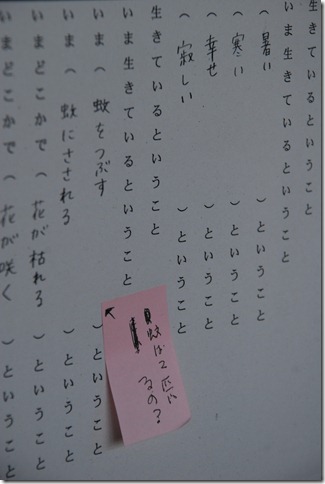 生きているということ
いま生きているということ
(暑い)ということ
(寒い)ということ
(幸せ)ということ
(寂しい)ということ
生きているということ
いま生きているということ
いま(蚊をつぶす)ということ
いま(蚊にさされる)ということ
いまどこかで(花が枯れる)ということ
いまどこかで(花が咲く)ということ
蚊は2匹い
るの?